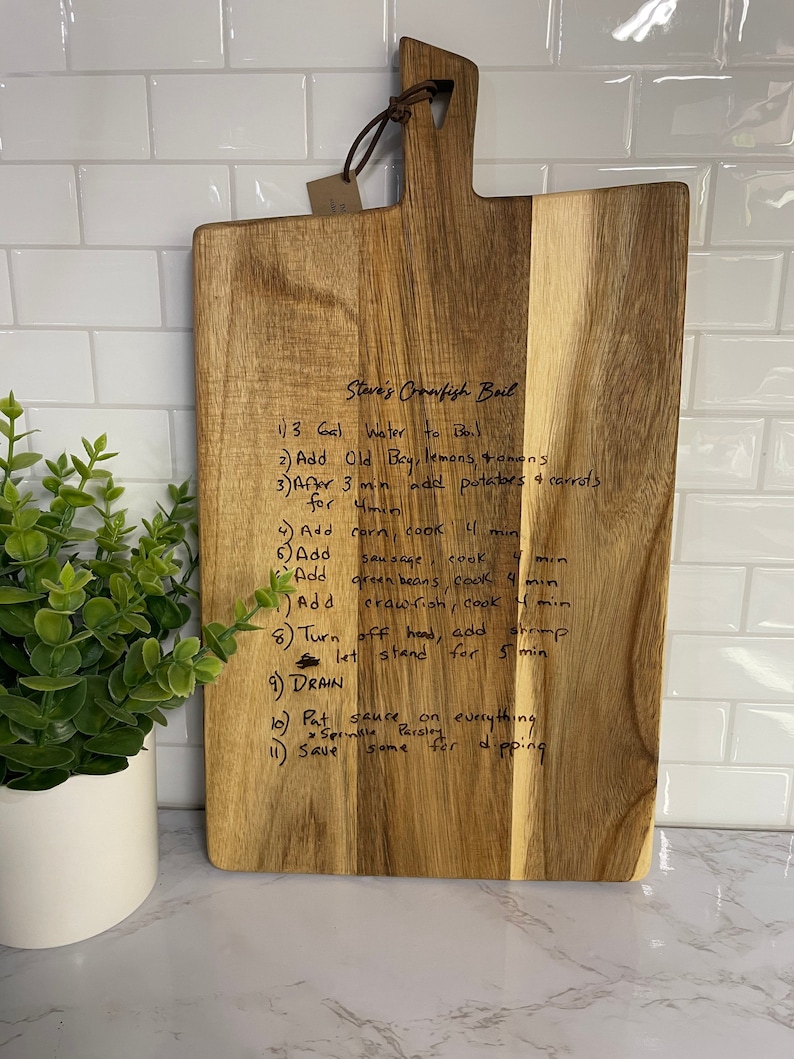 Steve's Crawfish Boil
1) 3 Gal Water to Boil
2) Add Old Bay, lemons, & onions
3) After 3 min add potatoes & carrots
for 4min
4) Add corn, cook 4 min
5) Add sausage, cook 4 min
Add greenbeans, cook 4 min
) Add crawfish, cook 4 min
8) Turn off head, add shrimp
let stand for 5 min
9) DRAIN
10) Put sauce on everything
* Sprinkle Parsley
11) Save some for dipping